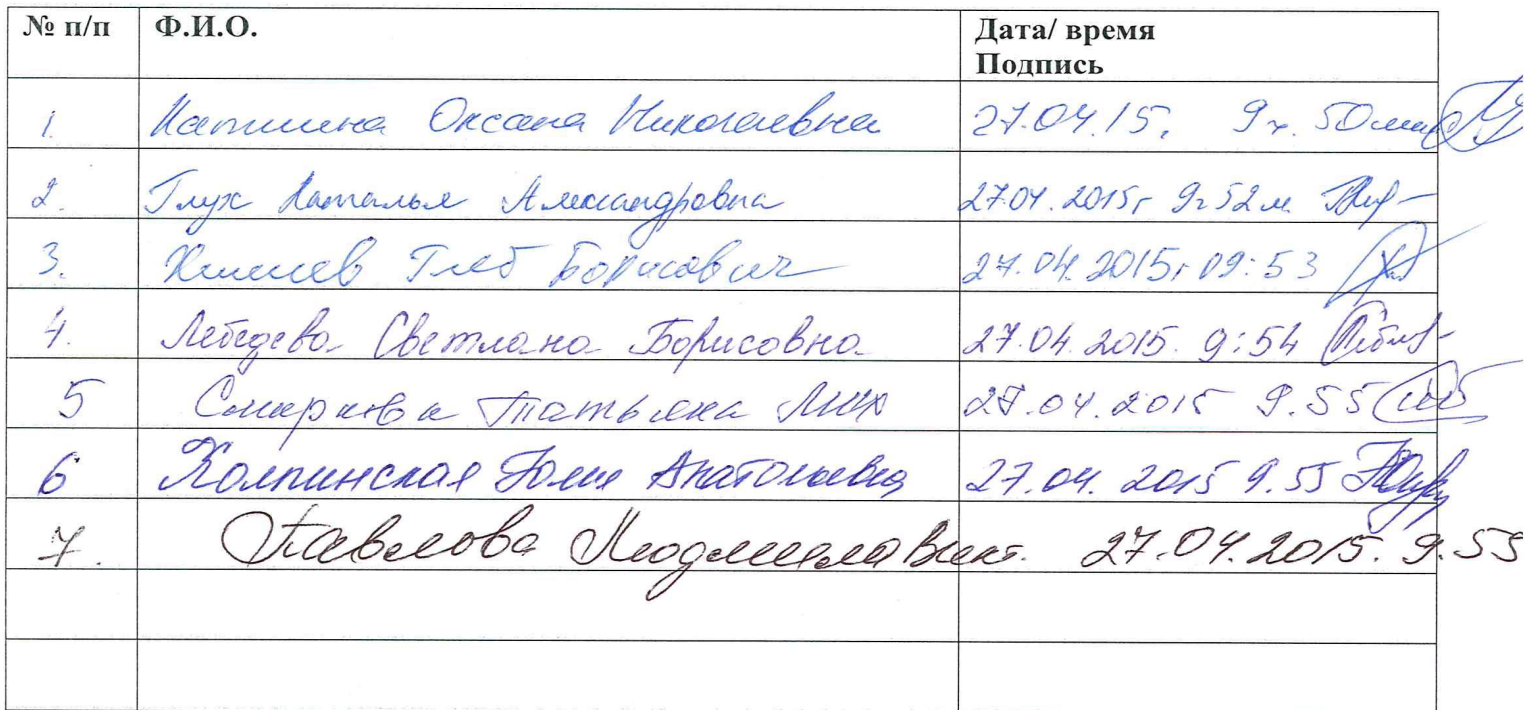 № п/п Ф.И.О. Дата/ время
Подпись
1. Оксана Николаевна 27.04.15. 9ч. 50мин
2. Глух Наталья Александровна 27.04.2015г 9г52м
3. Глеб Борисович 27.04.2015г 09:53
4. Лебедева Светлана Борисовна 27.04.2015. 9:54
5 Смирнова Татьяна Мих 27.04.2015 9.55
6 Колпинская Юлия Анатольевна 27.04.2015 9.55
7. Павлова Людмила Викт. 27.04.2015. 9.55